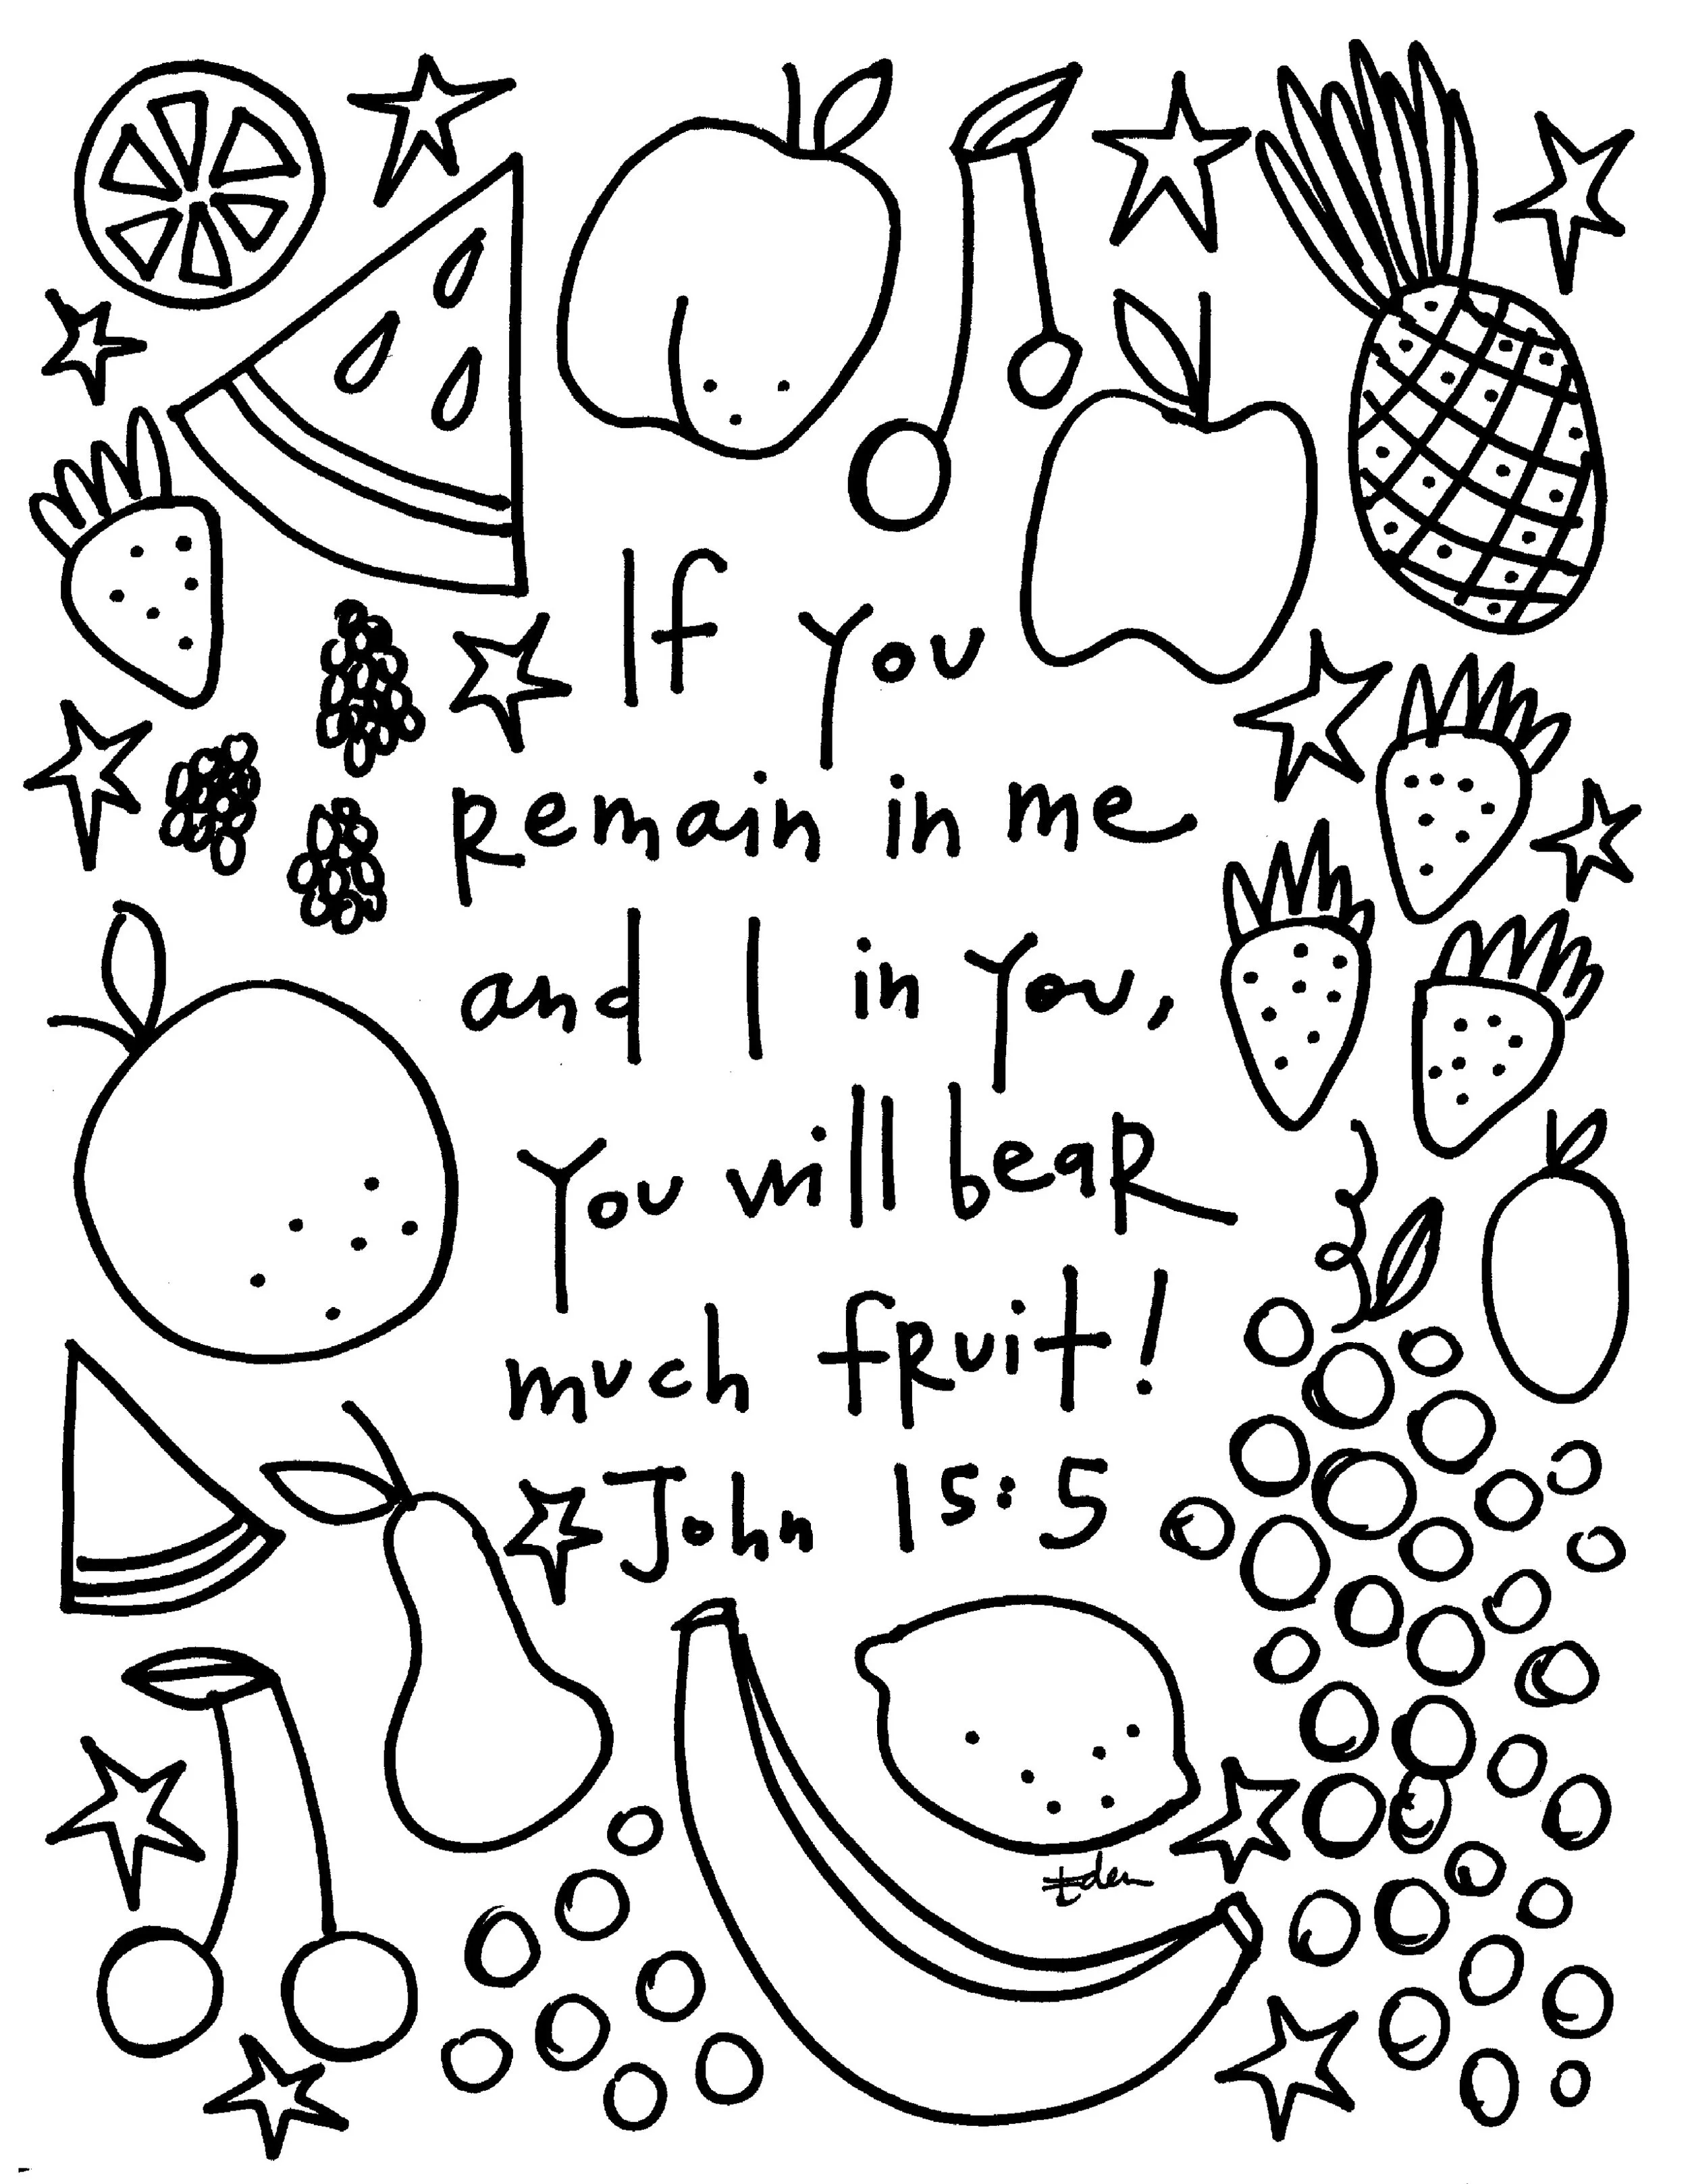 If You
Remain in me
and I in You,
You will bear
much fruit!
John 15:5
Eden